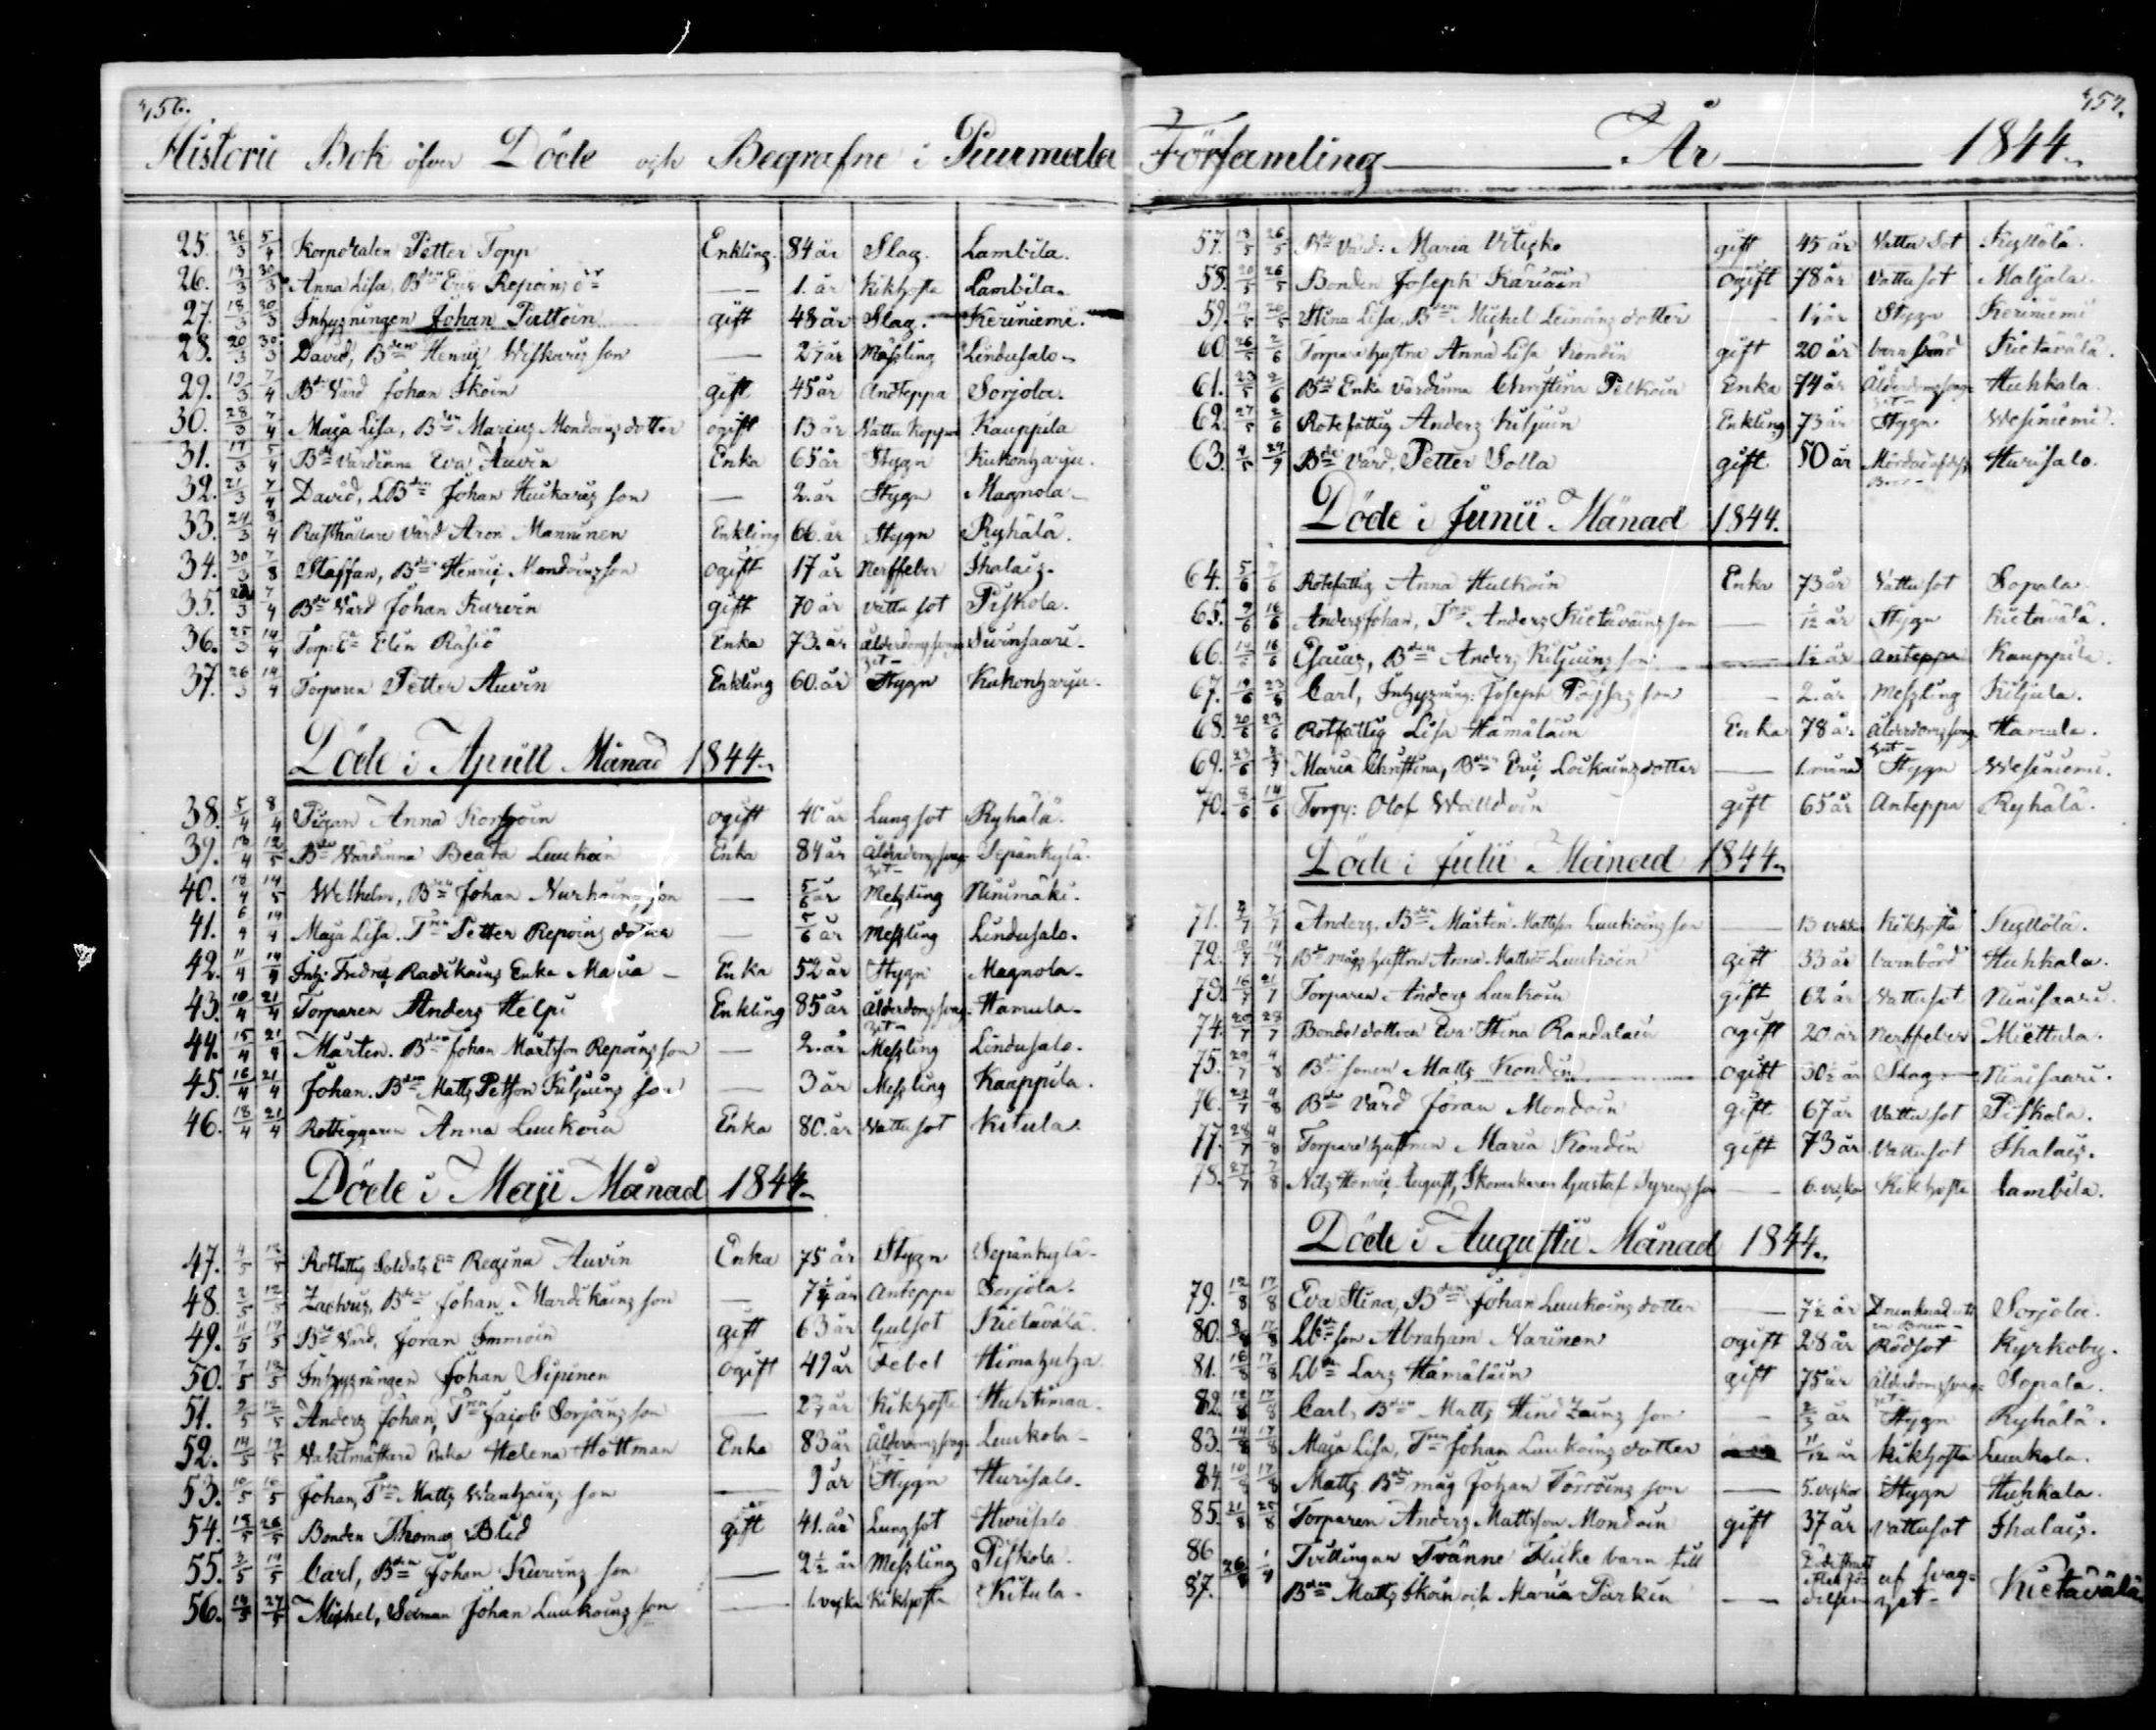 456.
Historie Bok öfver Döde och Begrafne i Puumala
25. 26/3 5/4 Korporalen Petter Topp Enkling. 84 år Slag. Lambila.
26. 13/3 30/3 Anna Lisa, Bden Eric Repoins dr — 1. år Kikhosta Lambila.
27. 18/3 30/3 Inhysningen Johan Pattoin gift 48 år Slag. Keriniemi.
28. 20/3 30/3 David, Bden Henric Weskains son — 2 1/4 år Mässling Lindusalo.
29. 19/3 7/4 Bde Värd Johan Ikoin gift 45 år Andteppa Sorjola.
30. 28/3 7/4 Maja Lisa, Bden Marcus Mondoins dotter ogift 13 år Vattu Koppor Kauppila
31. 17/3 5/4 Bde Värdinna Eva Auvin Enka 65 år Stygn Kukonharju.
32. 21/3 7/4 David, LBden Johan Huskains son — 2. år Stygn Magnola.
33. 24/3 8/4 Rusthållare Värd Aron Manninen Enkling 66. år Stygn Ryhälä.
34. 30/3 7/8 Staffan, Bden Henric Mondoins son ogift 17 år Nerffeber Ihalais.
35. 7/4 Bde Värd Johan Kurvin gift 70 år Vattu sot Piskola.
36. 25/3 14/4 Torp: En Elin Räsiö Enka 73. år Ålderdomssvaghet Surinsaari.
37. 26/3 14/4 Torparen Petter Auvin Enkling 60. år Stygn Kukonharju.
Döde i Aprill Månad 1844.
38. 5/4 8/4 Pigan Anna Korhoin ogift 40 år Lungsot Ryhälä.
39. 13/4 12/5 Bde Värdinna Beata Luukoin Enka 84 år Ålderdomssvaghet Sepänkylä.
40. 18/4 14/5 Wilhelm, Bden Johan Nurhoins son — 5/6 år Messling Niinimäki.
41. 6/4 14/4 Maja Lisa. Trn Petter Repoins dotter — 5/6 år Messling Lindusalo.
42. 11/4 14/4 Inh: Fredric Radikains Enka Maria Enka 52 år Stygn Magnola.
43. 10/4 21/4 Torparen Anders Helpi Enkling 85 år Ålderdomssvaghet Hamula.
44. 15/4 21/4 Mårten. Bden Johan Mårtsson Repoins son — 2. år Messling Lindusalo.
45. 16/4 21/4 Johan. Bden Matts Petsson Kiljuins son — 3 år Messling Kauppila.
46. 18/4 21/4 Rottiggaren Anna Luukoin Enka 80. år Vattusot Kitula.
Döde i Maji Månad 1844.
47. 4/5 12/5 Rotfattig Soldats En Regina Auvin Enka 75 år Stygn Sepänkylä.
48. 2/5 12/5 Zachris, Bden Johan Mardikains son — 7 3/4 år Anteppa Sorjola.
49. 11/5 17/5 Bde Värd. Jöran Immoin gift 63 år Gulsot Kietävälä.
50. 7/5 12/5 Inhysningen Johan Sipinen ogift 49 år Febel Himahuha
51. 2/5 12/5 Anders Johan, Trn Jacob Sorjoins son — Kikhosta Huhtimaa.
52. 14/5 19/5 Vaktmästare Enka Helena Hottman Enka 83 år Ålderdomssvaghet Luukola.
53. 10/5 16/5 Johan, Trn Matts Wanhoins son — 9 år Stygn Hurisalo.
54. 18/5 26/5 Bonden Thomas Blid gift 41. år Lungsot Hurisalo
55. 2/5 19/5 Carl, Bden Johan Kurvins son — 2 1/2 år Messling Piskola.
56. 19/5 27/5 Michel, Seman Johan Luukoins son — 1. vecka Kikhosta Kitula.
457.
Församling År 1844.
57. 18/5 26/5 Bde Värd: Maria Vitsko gift 45 år Vattu Sot Kyllölä.
58. 20/5 26/5 Bonden Joseph Käriäin ogift 78 år Vattusot Matjola.
59. 19/5 26/5 Stina Lisa, Bden Michel Leinoins dotter Stygn Keriniemi
60. 26/5 2/6 Torpare hustru Anna Lisa Kondin gift 20 år barnsbörd Kietävälä.
61. 23/5 2/6 Bde Enka Värdinna Christina Pelkoin Enka 74 år Ålderdomssvaghet Huhkala.
62. 27/5 2/6 Rotefattig Anders Kiljuin Enkling 73 år Stygn Wesiniemi.
63. 4/5 29/9 Bde Värd, Petter Solla gift 50 år Mördad af dess Bror Hurisalo.
Döde i Junii Månad 1844.
64. 5/6 7/6 Rotefattig Anna Hulkoin Enka 73 år Vattusot Sopala.
65. 9/6 16/6 Anders Johan, Trn Anders Kietäväins son — 1/12 år Stygn Kietävälä.
66. 14/6 16/6 Esaias, Bden Anders Kiljuins son. 1 1/2 år Anteppa Kauppila.
67. 19/6 23/6 Carl, Inhysning: Joseph Pöyhös son — 2. år Messling Kiljula.
68. 20/6 23/6 Rotfattig Lisa Hämäläin Enka 78 år Ålderdomssvaghet Hamula.
69. 23/6 Maria Christina, Bden Eric Loikains dotter — 1. månad Stygn Wesiniemi.
70. 8/6 14/6 Torp: Olof Wälldoin gift 65 år Anteppa Ryhälä.
Döde i Julii Månad 1844.
71. 4/7 7/7 Anders. Bden Mårten Mattsson Luukoins son — 13 veckor Kikhosta Kyllölä.
72. 12/7 14/7 Bde mågs hustru Anna Mattsdr Luukoin gift 33 år barnbörd Huhkala.
73. 16/7 21/7 Torparen Anders Luukoin gift 62 år Vattusot Niinisaari.
74. 20/7 28/7 Bonde dottren Eva Stina Randalain ogift 20. år Nerffeber Miettula.
75. 29/7 4/8 Bde sonen Matts Kondin ogift 30 1/2 år Slag Niinisaari.
76. 4/8 Bde Värd Jöran Mondoin gift 67 år Vattusot Piskola.
77. 28/7 4/8 Torpare hustrun Maria Kondin gift 73 år Vattusot Ihalais.
78. 27/7 7/8 Nils Henric August, Skomakaren Gustaf Syrens son — 6. veckor Kikhosta Lambila.
Döde i Augustii Månad 1844.
79. 12/8 17/8 Eva Stina, Bden Johan Luukoins dotter — 7 1/2 år Drunknad uti en Brun Sorjola.
80. 17/8 Lbde son Abraham Narinen ogift 28 år Rödsot Kyrkoby.
81. 16/8 17/8 Lbden Lars Hämäläin gift 75 år Ålderdomssvaghet Sopala.
82. 12/8 17/8 Carl, Bden Matts Hindzains son — 2/3 år Stygn Ryhälä.
83. 14/8 17/8 Maja Lisa, Trn Johan Luukoins dotter 11/12 år Kikhosta Luukola.
84. 10/8 17/8 Matts Bde måg Johan Törröins son — 5. veckor Stygn Huhkala.
85. 21/8 25/8 Torparen Anders Mattsson Mondoin gift 37 år Vattusot Ihalais.
86 26/8 Tvillingar Tvänne Flicke barn till
87. Bden Matts Ikoin och Maria Parkin — af svaghet Kietävälä